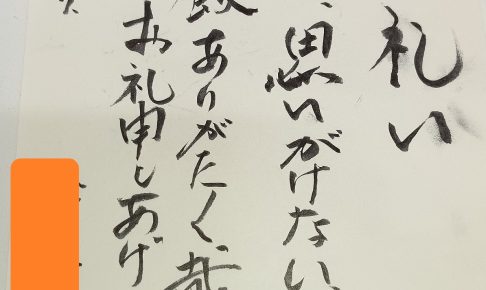 礼い
思いがけない
ありがたく、
お礼申しあげ